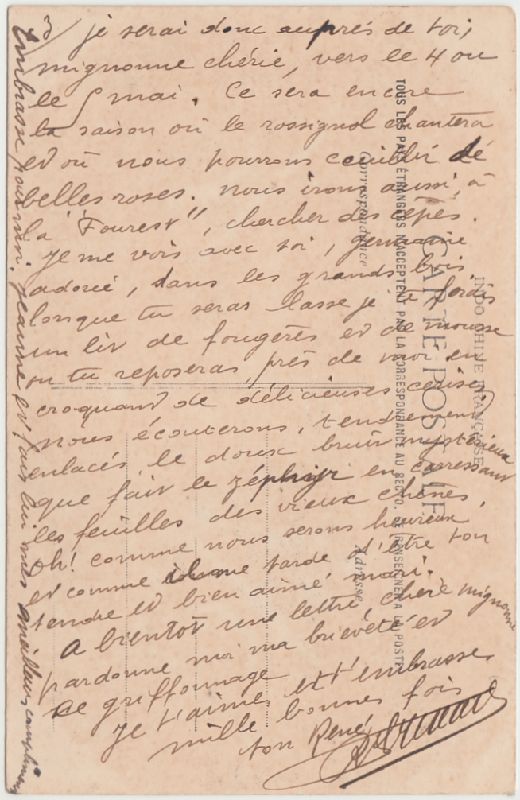 3) je serai donc auprés de toi,
mignonne chérie, vers le 4 ou
le 5 mai. Ce sera encore
la saison où le rossignol chantera
et où nous pourrons cueillir de
belles roses. nous irons aussi, à
la "Fourest", chercher des cèpes.
Je me vois avec toi, germaine
adorée, dans les grands bois
lorsque tu seras lasse je te ferais
un lit de fougères et de mousse
ou tu reposeras, près de moi en
croquant de délicieuses cerises
nous écouterons, tendrement
enlacés, le doux bruit mystérieux
que fait le zéphyr en caressant
les feuilles des vieux chênes,
oh! comme nous serons heureux,
et comme il me tarde d'être ton
tendre et bien aimé mari.
A bientôt une lettre, chère mignonne
pardonne moi ma brièveté et
ce griffonnage
Je t'aime et t'embrasse
mille bonnes fois
ton René
Embrasse pour moi Jeanne et fais lui mes meilleurs compliments
INDO-CHINE FRANÇAISE
CARTE POSTALE
TOUS LES PAYS ÉTRANGERS N'ACCEPTENT PAS LA CORRESPONDANCE AU RECTO. SE RENSEIGNER A LA POSTE
Correspondance
Adresse